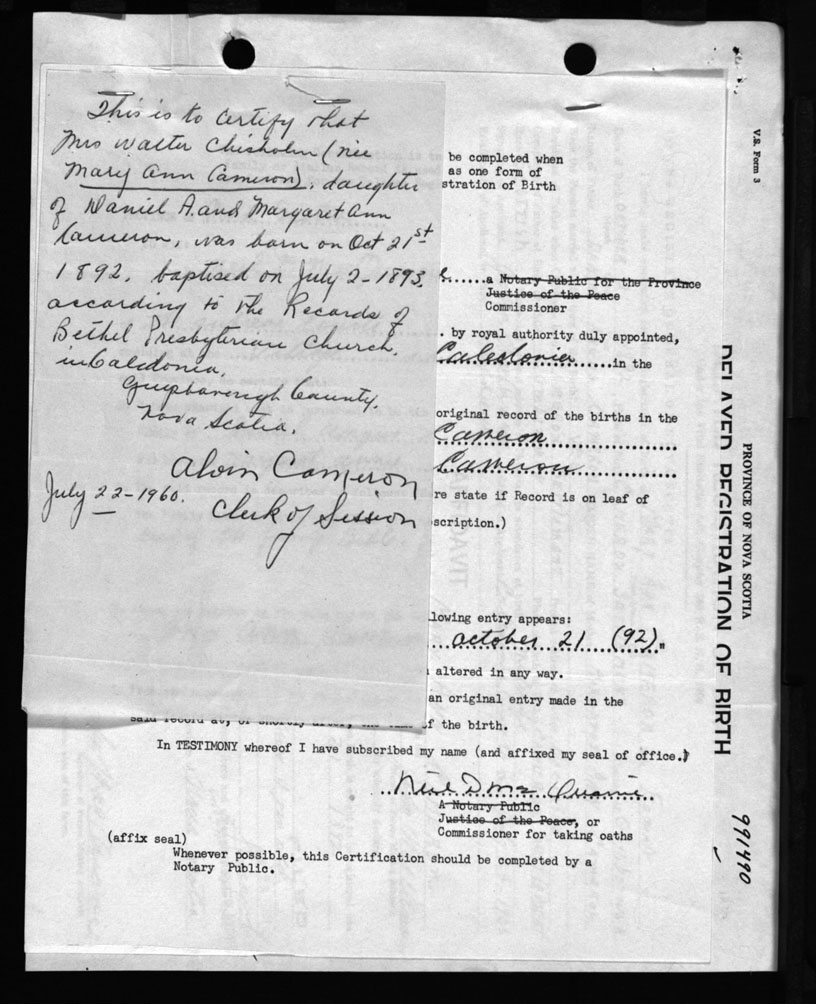 This is to certify that
Mrs Walter Chisholm (nee
Mary Ann Cameron), daughter
of Daniel A. and Margaret Ann
Cameron, was born on Oct 21st
1892. baptised on July 2-1893.
according to the Records of
Bethel Presbyterian Church.
in Caledonia.
Guysborough County.
Nova Scotia.
Alvin Cameron
July 22-1960.
Clerk of Session
be completed when
as one form of
stration of Birth
a Notary Public for the Province
Justice of the Peace
Commissioner
. by royal authority duly appointed,
Caledonia in the
original record of the births in the
Cameron
Cameron
re state if Record is on leaf of
scription.)
lowing entry appears:
October 21 (92)"
altered in any way.
an original entry made in the
said record at, or shortly after, the time of the birth.
In TESTIMONY whereof I have subscribed my name (and affixed my seal of office.)
A Notary Public
Justice of the Peace, or
Commissioner for taking oaths
(affix seal)
Whenever possible, this Certification should be completed by a
Notary Public.
V.S. Form 3
PROVINCE OF NOVA SCOTIA
DELAYED REGISTRATION OF BIRTH
991490